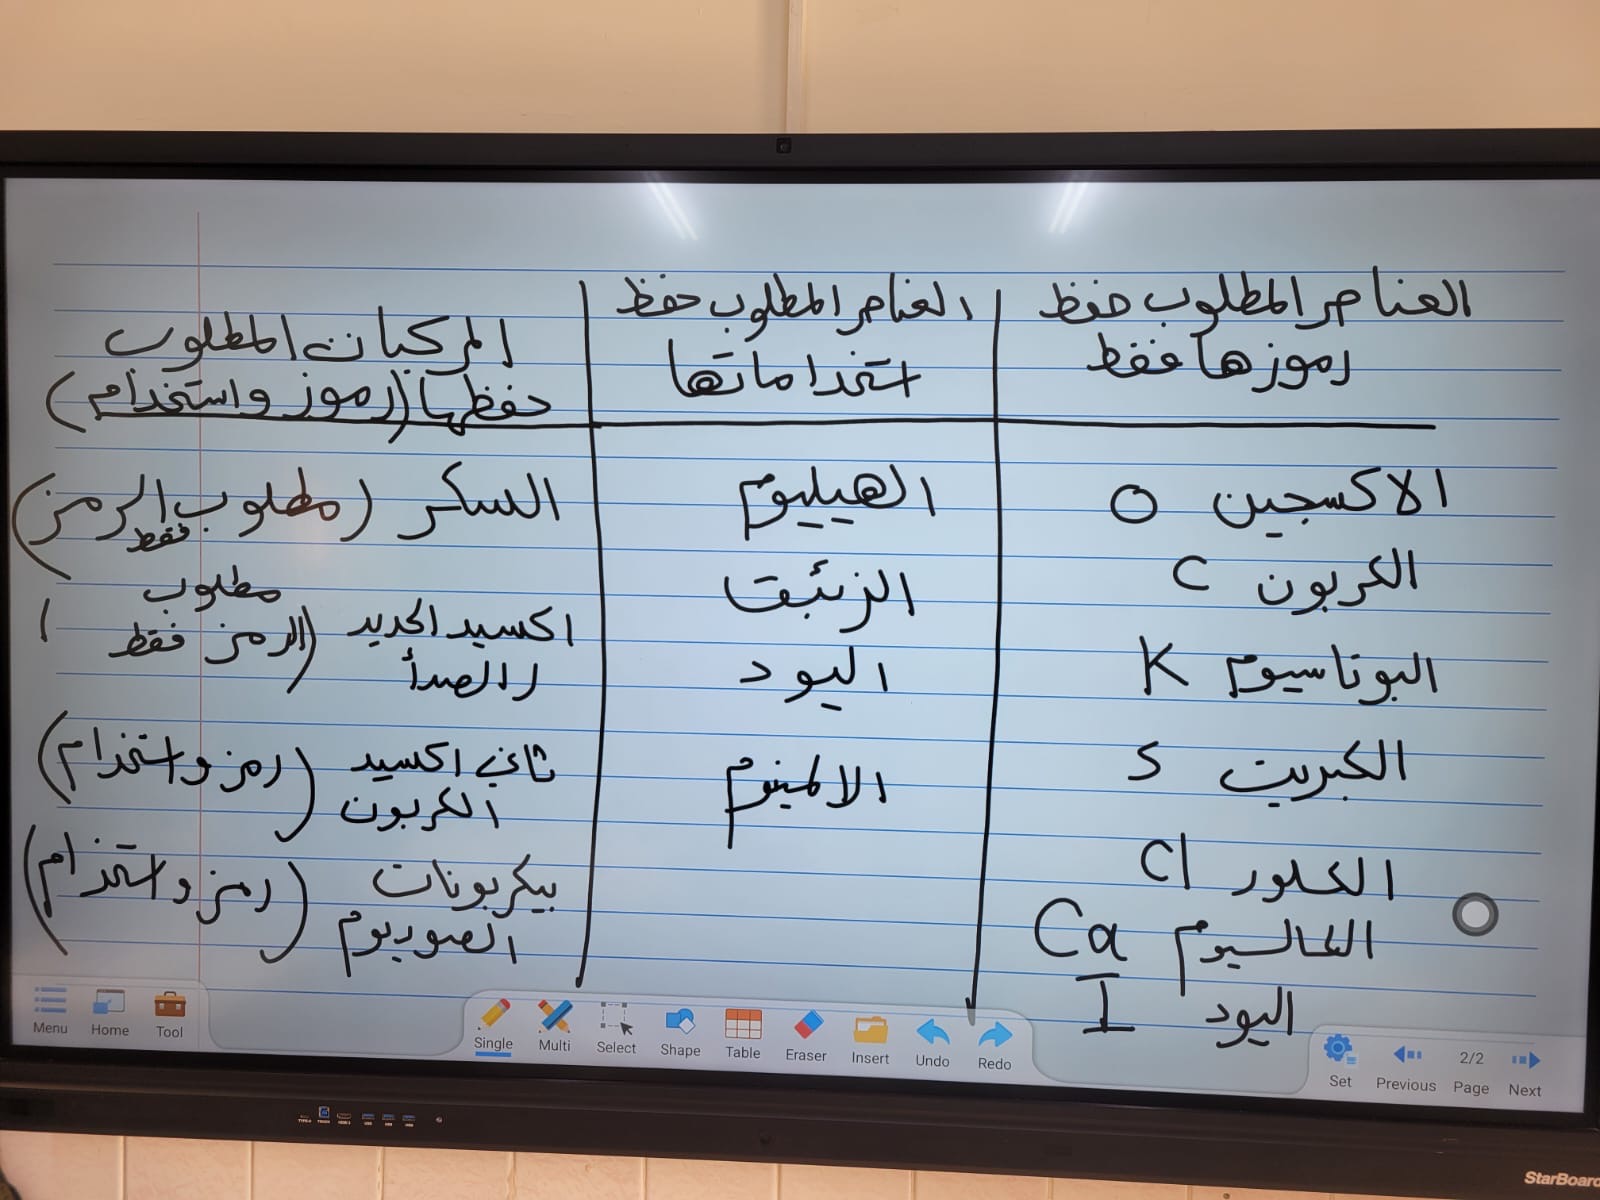 العناصر المطلوب حفظ
رموزها فقط
الاكسجين O
الكربون C
البوتاسيوم K
الكبريت S
الكلور Cl
الكالسيوم Ca
اليود I
العناصر المطلوب حفظ
استخداماتها
الهيليوم
الزئبق
اليود
الالمنيوم
المركبات المطلوب
حفظها (رموز واستخدام)
السكر (مطلوب الرمز
فقط)
اكسيد الحديد (مطلوب
الصدأ الرمز فقط)
ثاني اكسيد (رمز واستخدام)
الكربون
بيكربونات (رمز واستخدام)
الصوديوم
Menu Home Tool
Single Multi Select Shape Table Eraser Insert Undo Redo
Set Previous 2/2 Page Next
StarBoard